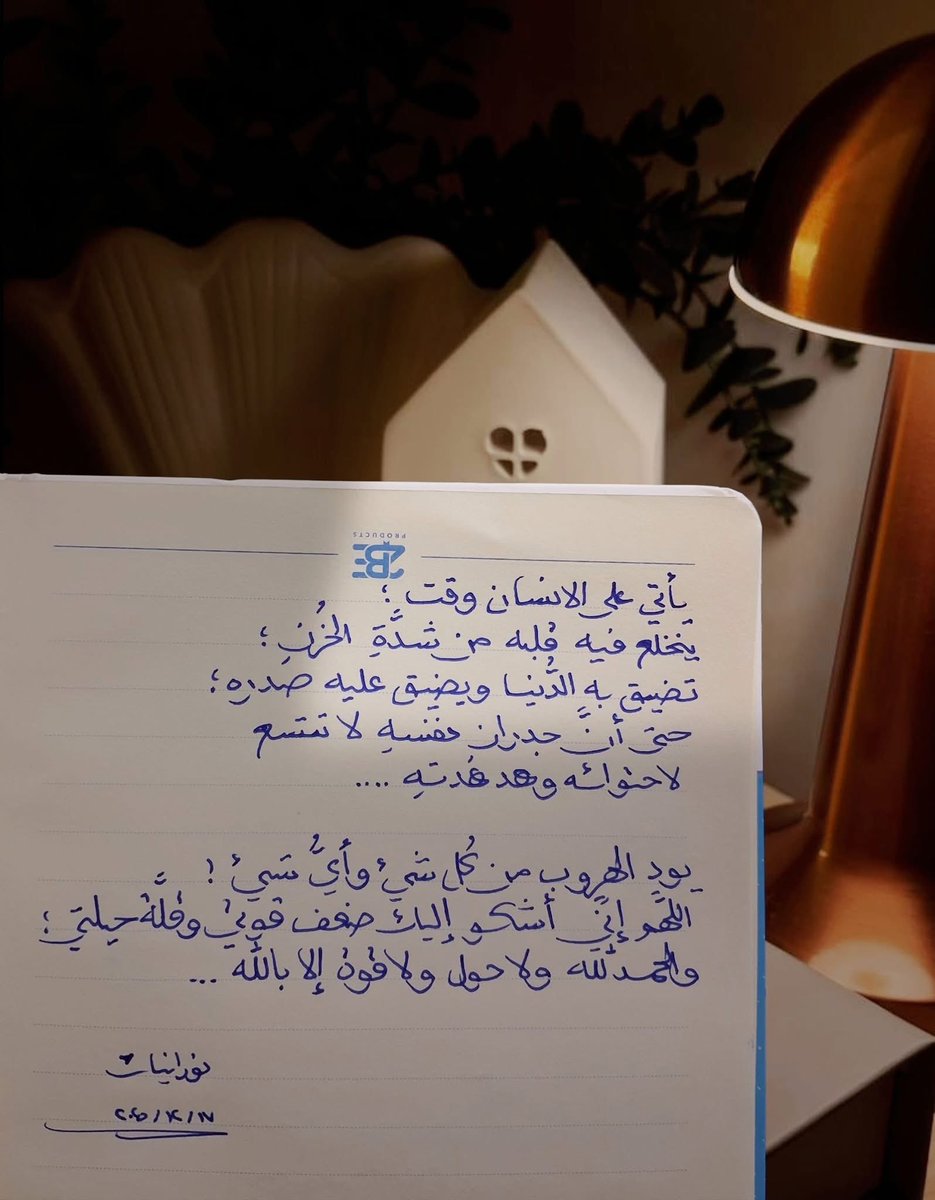 2BE
PRODUCTS
يأتي على الانسان وقت ؛
ينخلع فيه قلبه من شدَّةِ الحُزنِ ؛
تضيق بهِ الدُّنيا ويضيق عليه صدره ؛
حتى أنَّ جدران نفسهِ لا تتسع
لاحتوائه وهدهدتهِ ....
يود الهروب من كُل شيءٍ وأيُّ شيءٍ !
اللهمَّ إنّي أشكو إليك ضعف قوتي وقلَّة حيلتي ؛
والحمدلله ولا حول ولا قوة إلا بالله ...
نورانيات